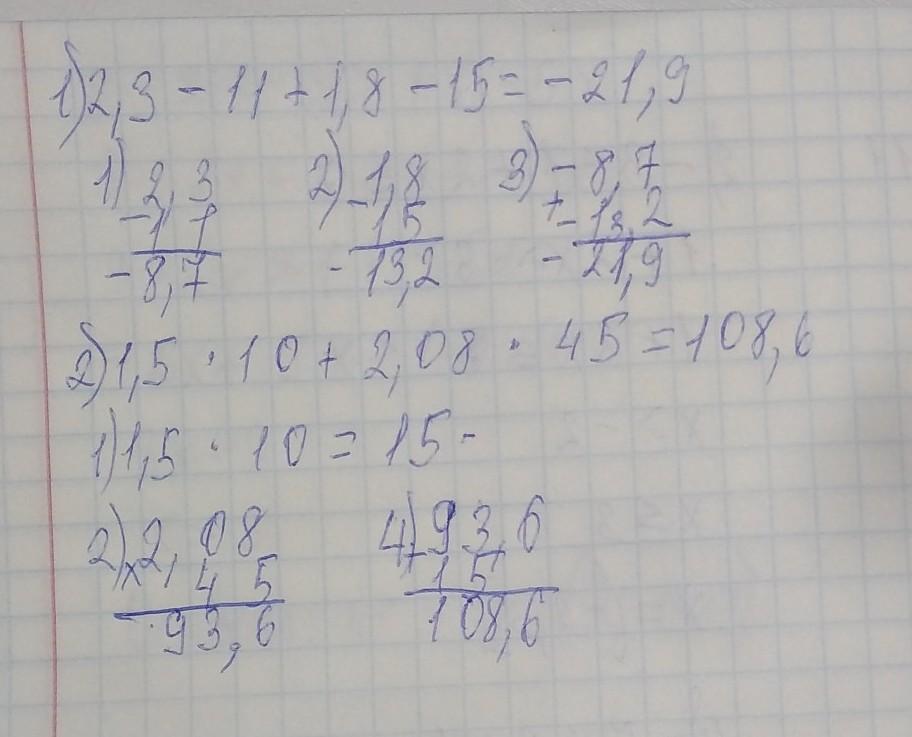 1) 2,3 - 11 + 1,8 - 15 = - 21,9
1) 2,3 2) 1,8 3) - 8,7
- 11 - 15 + - 13,2
- 8,7 - 13,2 - 21,9
2) 1,5 · 10 + 2,08 · 45 = 108,6
1) 1,5 · 10 = 15
2) 2,08 4) 93,6
× 45 + 15
93,6 108,6